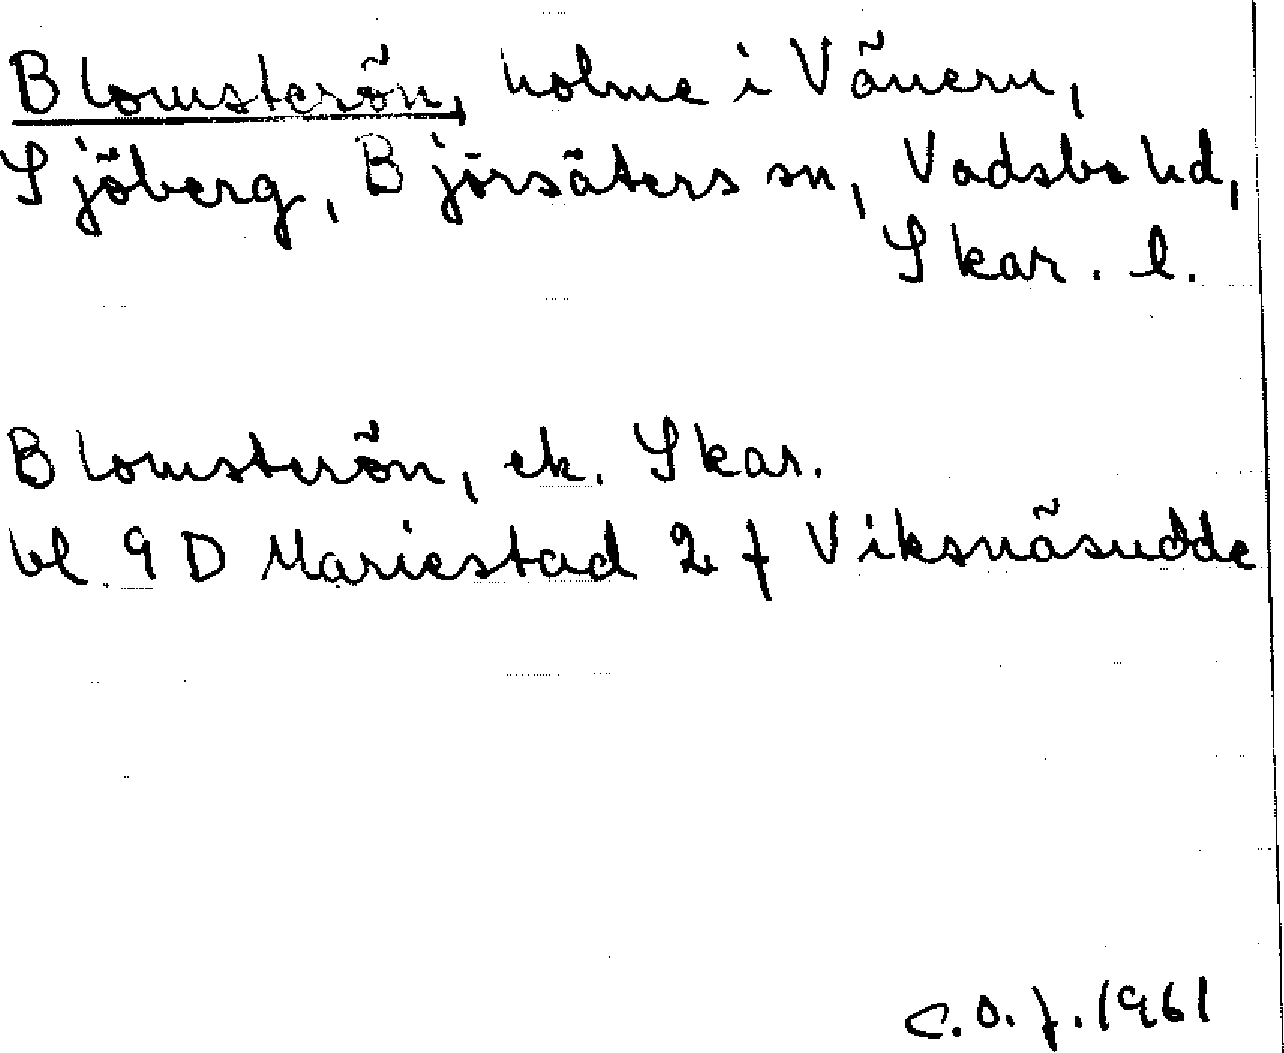 Blomsterön, holme i Vänern,
Sjöberg, Björsäters sn, Vadsbo hd,
Skar. l.
Blomsterön, ek. Skar.
bl. 9 D Mariestad 2 f Viksnäsudde
C.O.f. 1961